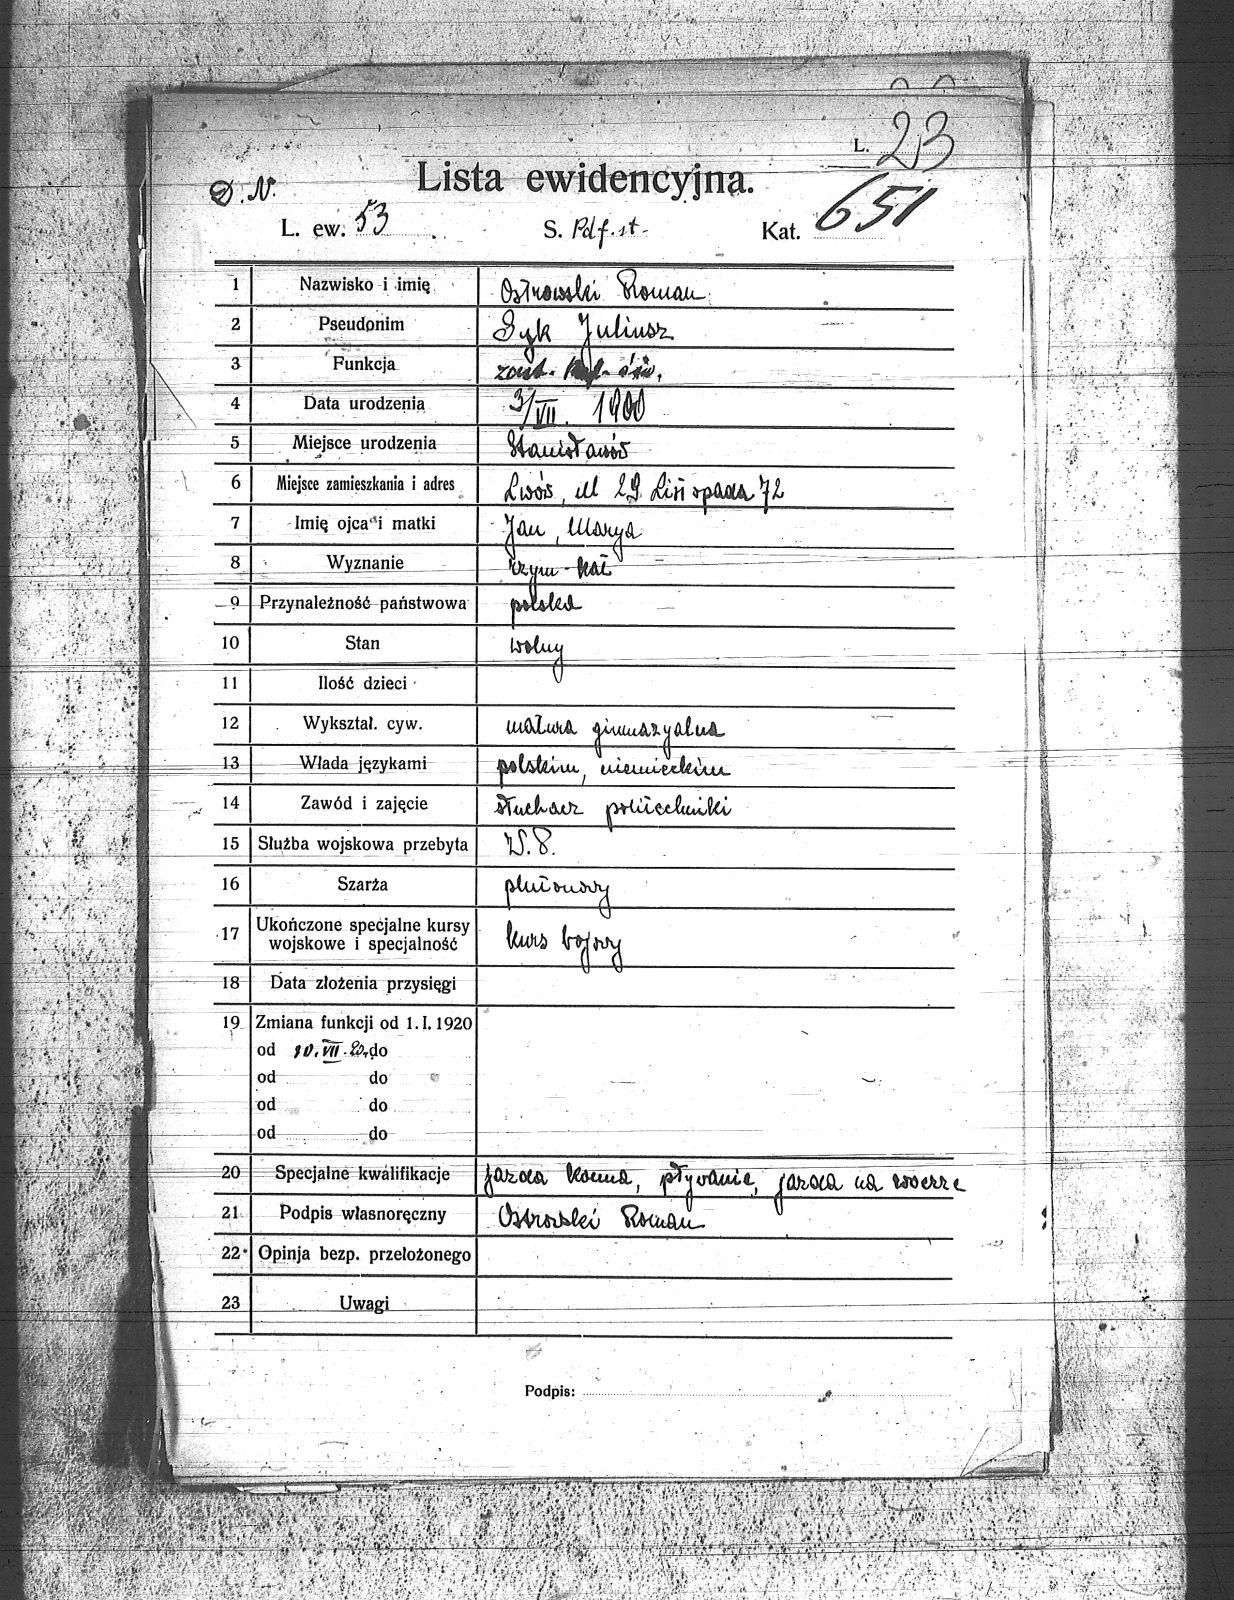 L. 23
Lista ewidencyjna.
D. N.
L. ew. 53 S. Pdf. st. Kat. 651
1 Nazwisko i imię Ostrowski Roman
2 Pseudonim Juliusz
3 Funkcja zast.
4 Data urodzenia 3/VII. 1900
5 Miejsce urodzenia Stanisławów
6 Miejsce zamieszkania i adres Lwów, ul 29 Listopada 72
7 Imię ojca i matki Jan, Marya
8 Wyznanie rzym-kat
9 Przynależność państwowa polska
10 Stan wolny
11 Ilość dzieci
12 Wykształ. cyw. matura gimnazyalna
13 Włada językami polskim, niemieckim
14 Zawód i zajęcie słuchacz politechniki
15 Służba wojskowa przebyta W.P.
16 Szarża plutonowy
17 Ukończone specjalne kursy
wojskowe i specjalność kurs bojowy
18 Data złożenia przysięgi
19 Zmiana funkcji od 1. I. 1920
od 10. VII. 20. do
od do
od do
od do
20 Specjalne kwalifikacje jazda konna, pływanie, jazda na rowerze
21 Podpis własnoręczny Ostrowski Roman
22 Opinja bezp. przełożonego
23 Uwagi
Podpis: